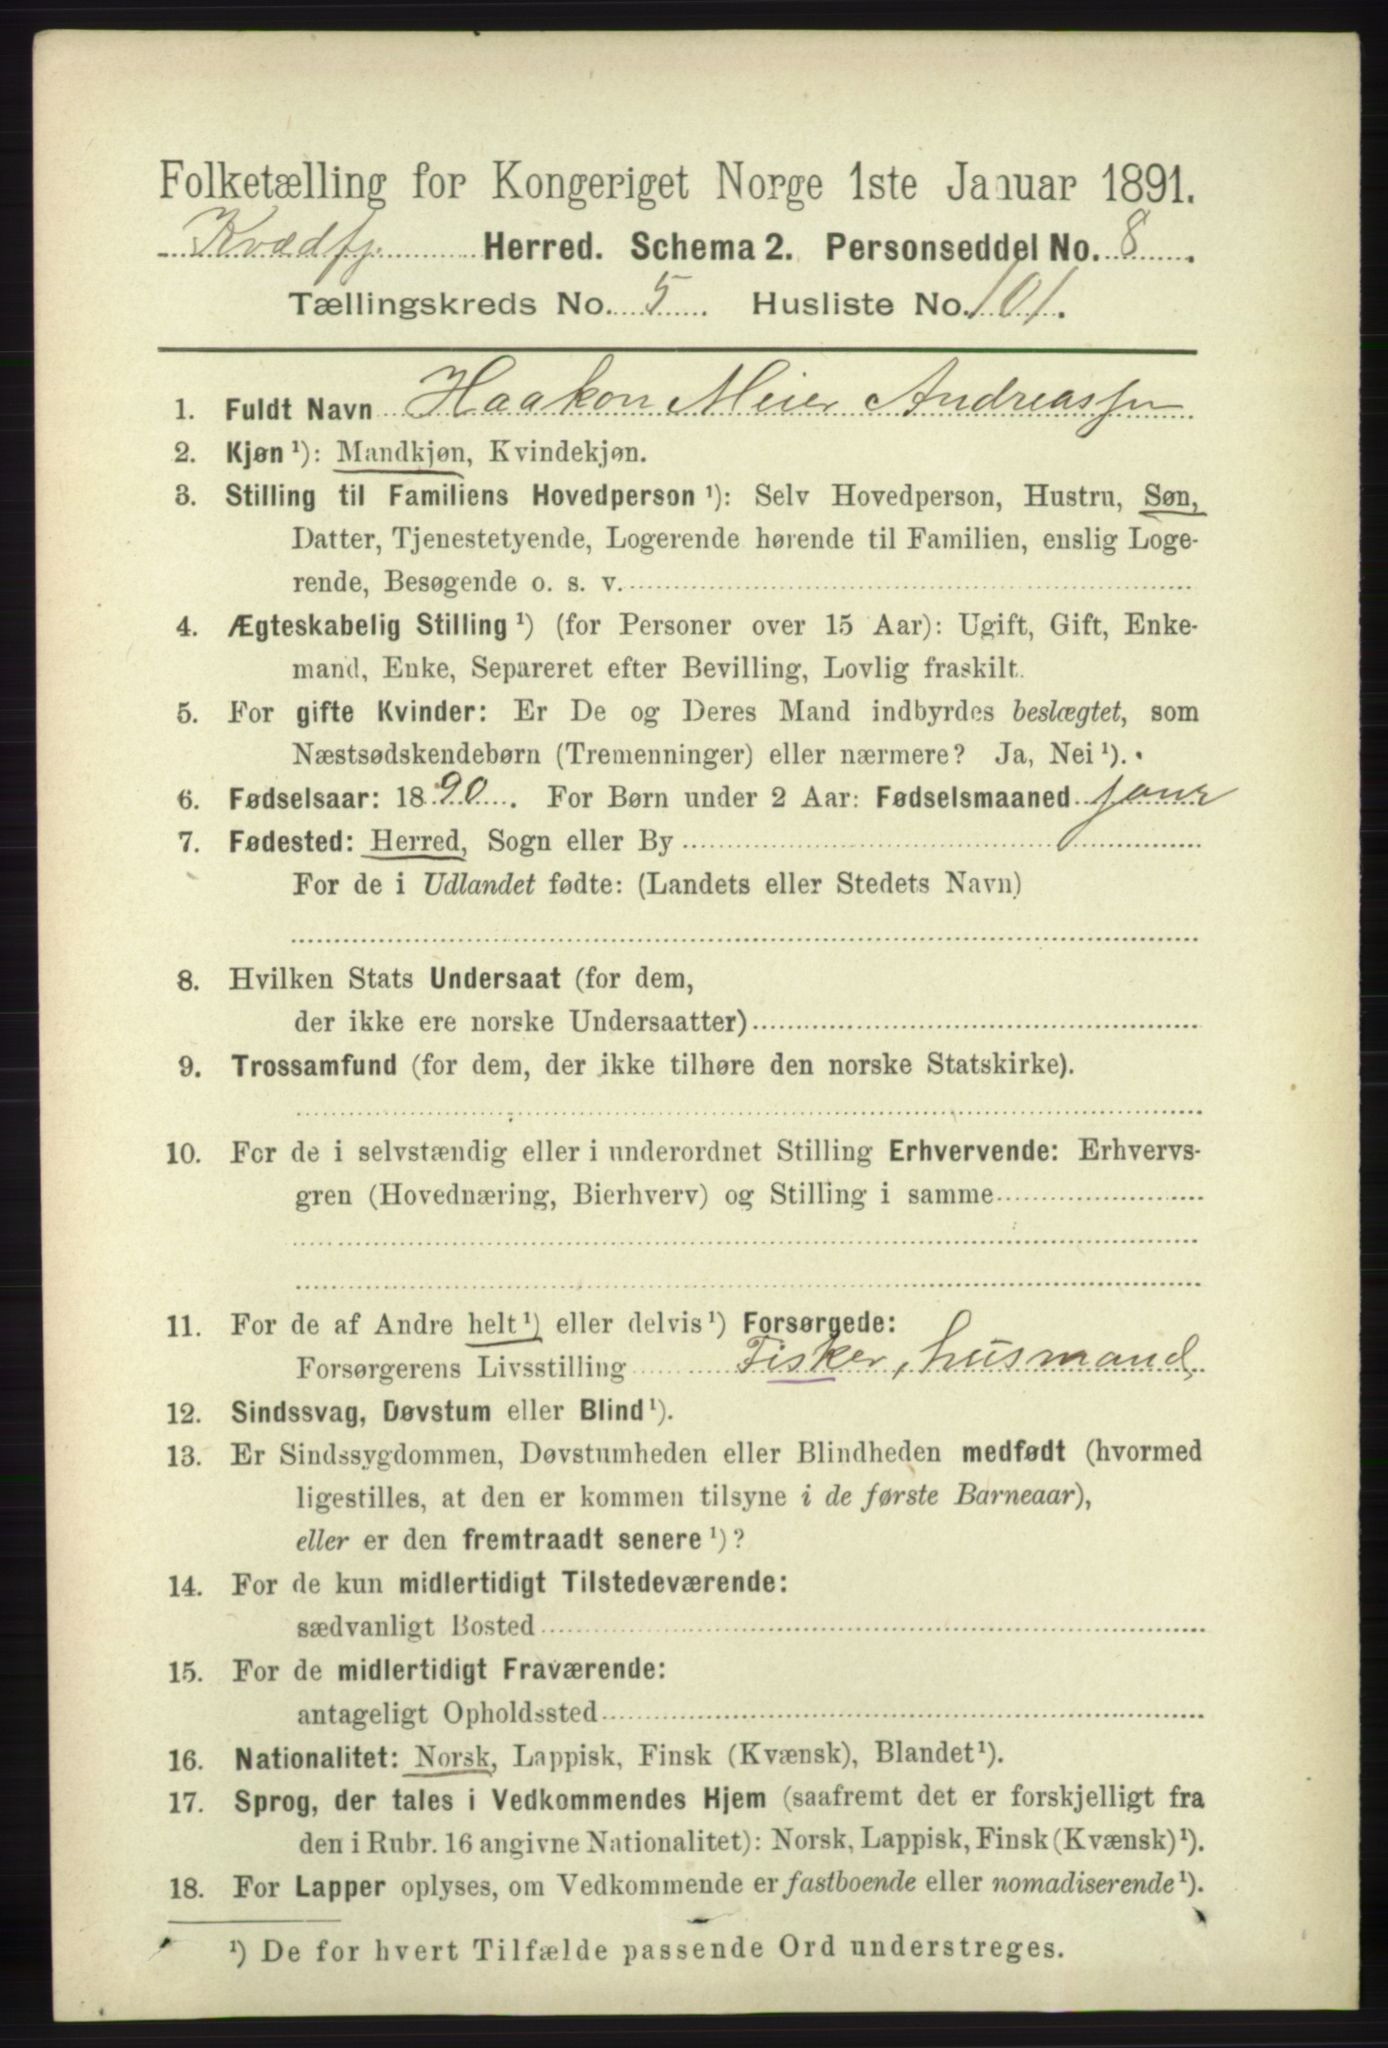 Folketælling for Kongeriget Norge 1ste Januar 1891.
Kvædfj. Herred. Schema 2. Personseddel No. 8.
Tællingskreds No. 5. Husliste No. 101.
1. Fuldt Navn Haakon Meier Andreassen
2. Kjøn ¹): Mandkjøn, Kvindekjøn.
3. Stilling til Familiens Hovedperson ¹): Selv Hovedperson, Hustru, Søn,
Datter, Tjenestetyende, Logerende hørende til Familien, enslig Loge-
rende, Besøgende o. s. v.
4. Ægteskabelig Stilling ¹) (for Personer over 15 Aar): Ugift, Gift, Enke-
mand, Enke, Separeret efter Bevilling, Lovlig fraskilt.
5. For gifte Kvinder: Er De og Deres Mand indbyrdes beslægtet, som
Næstsødskendebørn (Tremenninger) eller nærmere? Ja, Nei ¹).
6. Fødselsaar: 1890. For Børn under 2 Aar: Fødselsmaaned Janr
7. Fødested: Herred, Sogn eller By
For de i Udlandet fødte: (Landets eller Stedets Navn)
8. Hvilken Stats Undersaat (for dem,
der ikke ere norske Undersaatter)
9. Trossamfund (for dem, der ikke tilhøre den norske Statskirke).
10. For de i selvstændig eller i underordnet Stilling Erhvervende: Erhvervs-
gren (Hovednæring, Bierhverv) og Stilling i samme
11. For de af Andre helt ¹) eller delvis ¹) Forsørgede:
Forsørgerens Livsstilling Fisker, husmand
12. Sindssvag, Døvstum eller Blind ¹).
13. Er Sindssygdommen, Døvstumheden eller Blindheden medfødt (hvormed
ligestilles, at den er kommen tilsyne i de første Barneaar),
eller er den fremtraadt senere ¹)?
14. For de kun midlertidigt Tilstedeværende:
sædvanligt Bosted
15. For de midlertidigt Fraværende:
antageligt Opholdssted
16. Nationalitet: Norsk, Lappisk, Finsk (Kvænsk), Blandet ¹).
17. Sprog, der tales i Vedkommendes Hjem (saafremt det er forskjelligt fra
den i Rubr. 16 angivne Nationalitet): Norsk, Lappisk, Finsk (Kvænsk) ¹).
18. For Lapper oplyses, om Vedkommende er fastboende eller nomadiserende ¹).
¹) De for hvert Tilfælde passende Ord understreges.